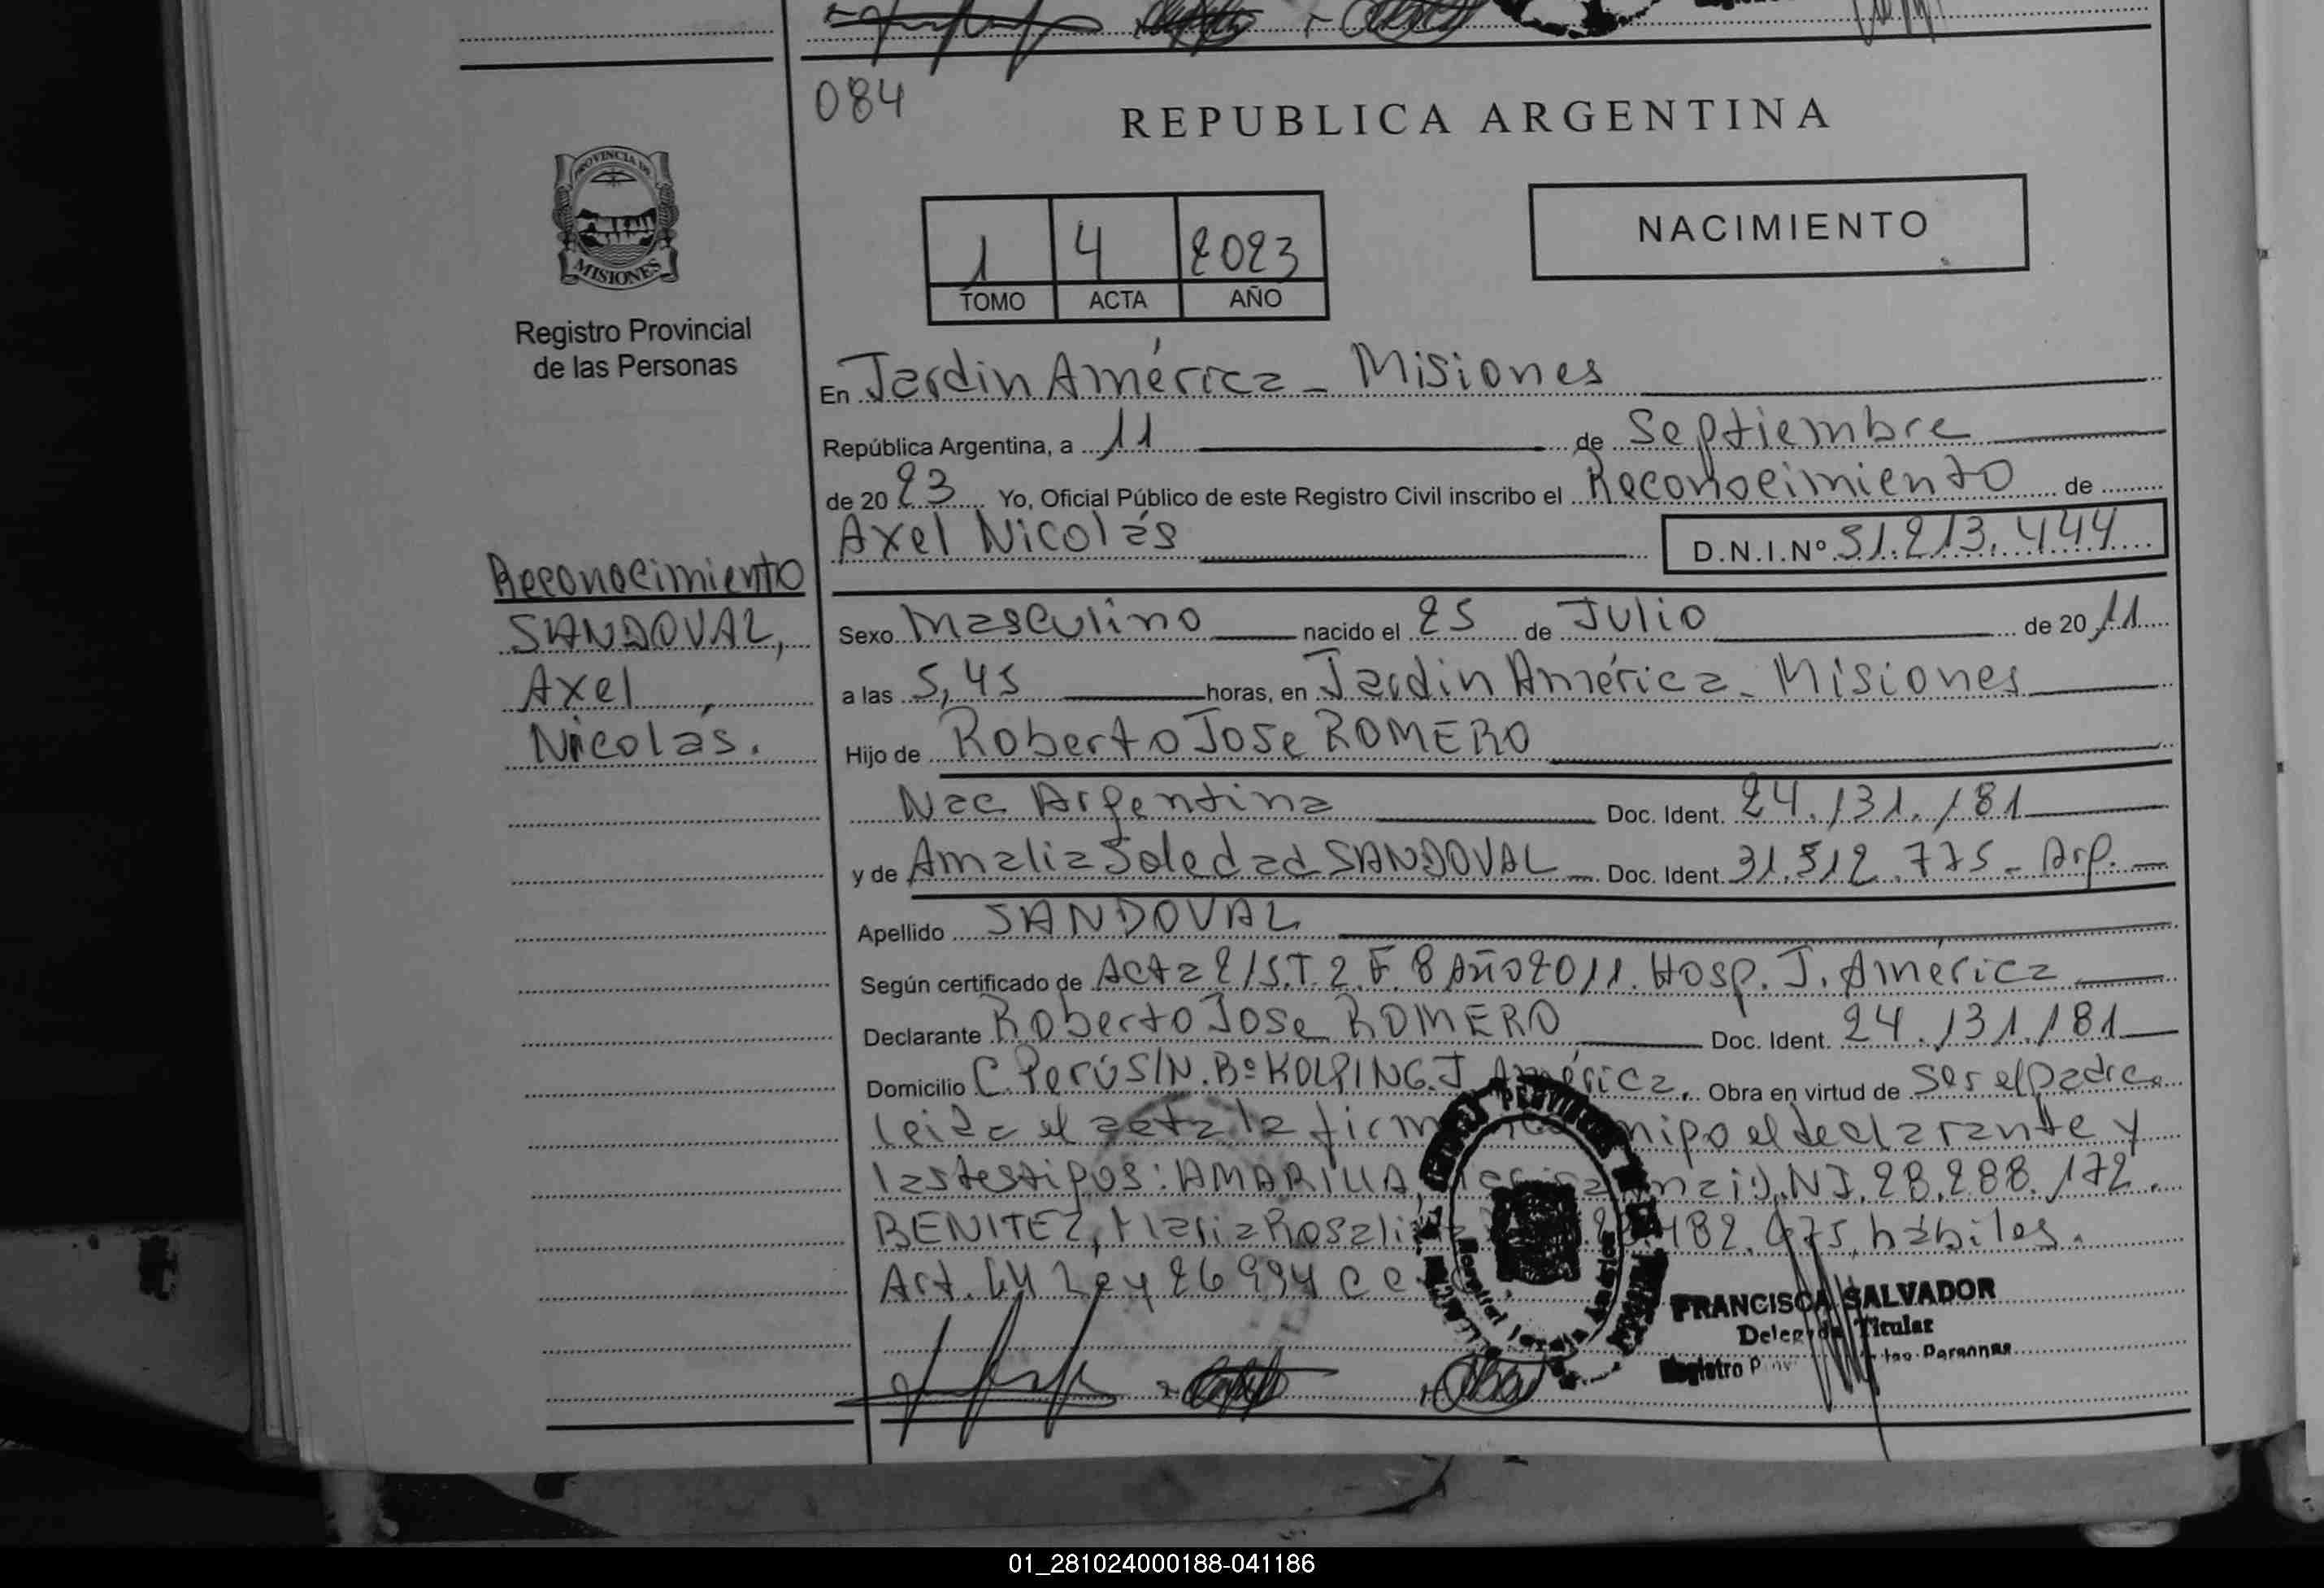 084
REPUBLICA ARGENTINA
PROVINCIA DE
MISIONES
Registro Provincial
de las Personas
1 4 2023
TOMO ACTA AÑO
NACIMIENTO
En Jardin América - Misiones
República Argentina, a 11 de Septiembre
de 20 23 Yo, Oficial Público de este Registro Civil inscribo el Reconocimiento de
Axel Nicolás D.N.I.Nº 51.213.444
Reconocimiento
SANDOVAL,
Axel
Nicolás.
Sexo Masculino nacido el 25 de Julio de 20 11
a las 5,45 horas, en Jardin América - Misiones
Hijo de Roberto Jose ROMERO
Nac Argentina Doc. Ident. 24.131.181
y de Amalia Soledad SANDOVAL Doc. Ident. 31.512.775 - Arg.
Apellido SANDOVAL
Según certificado de Acta 215.T.2.F.8 Año 2011. Hosp. J. América
Declarante Roberto Jose ROMERO Doc. Ident. 24.131.181
Domicilio C. Perú S/N. Bº KOLPING. J. América. Obra en virtud de ser el padre.
Leida el acta la firm migo el declarante y
las testigos: AMARILLA, D.N.I. 28.288.172.
BENITEZ, Maria Rosali 482.475, hábiles.
Art. 64 Ley 26994 C C
FRANCISCA SALVADOR
Delegada Titular
Registro P las Personas
01_281024000188-041186